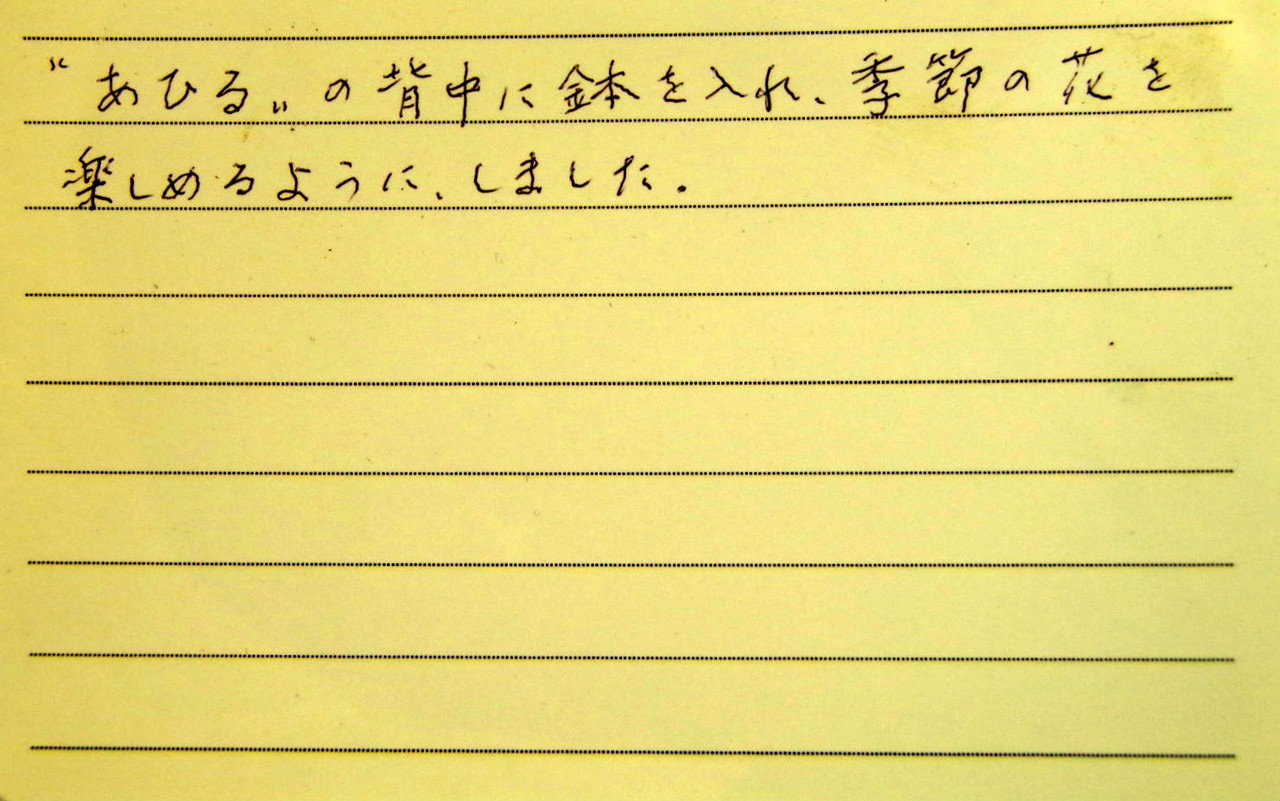 〝あひる〟の背中に鉢を入れ、季節の花を
楽しめるように、しました。